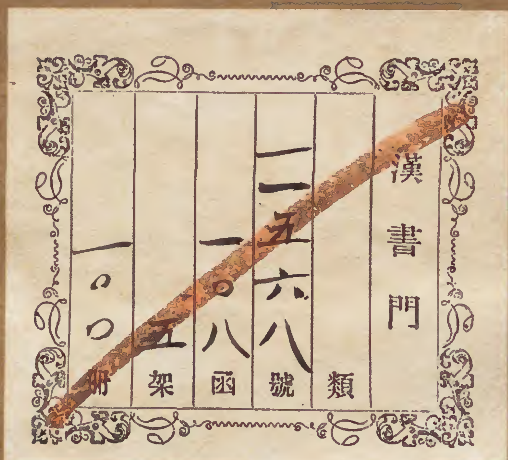 漢書門
類
一一五六八號
一〇八函
五架
一〇〇冊